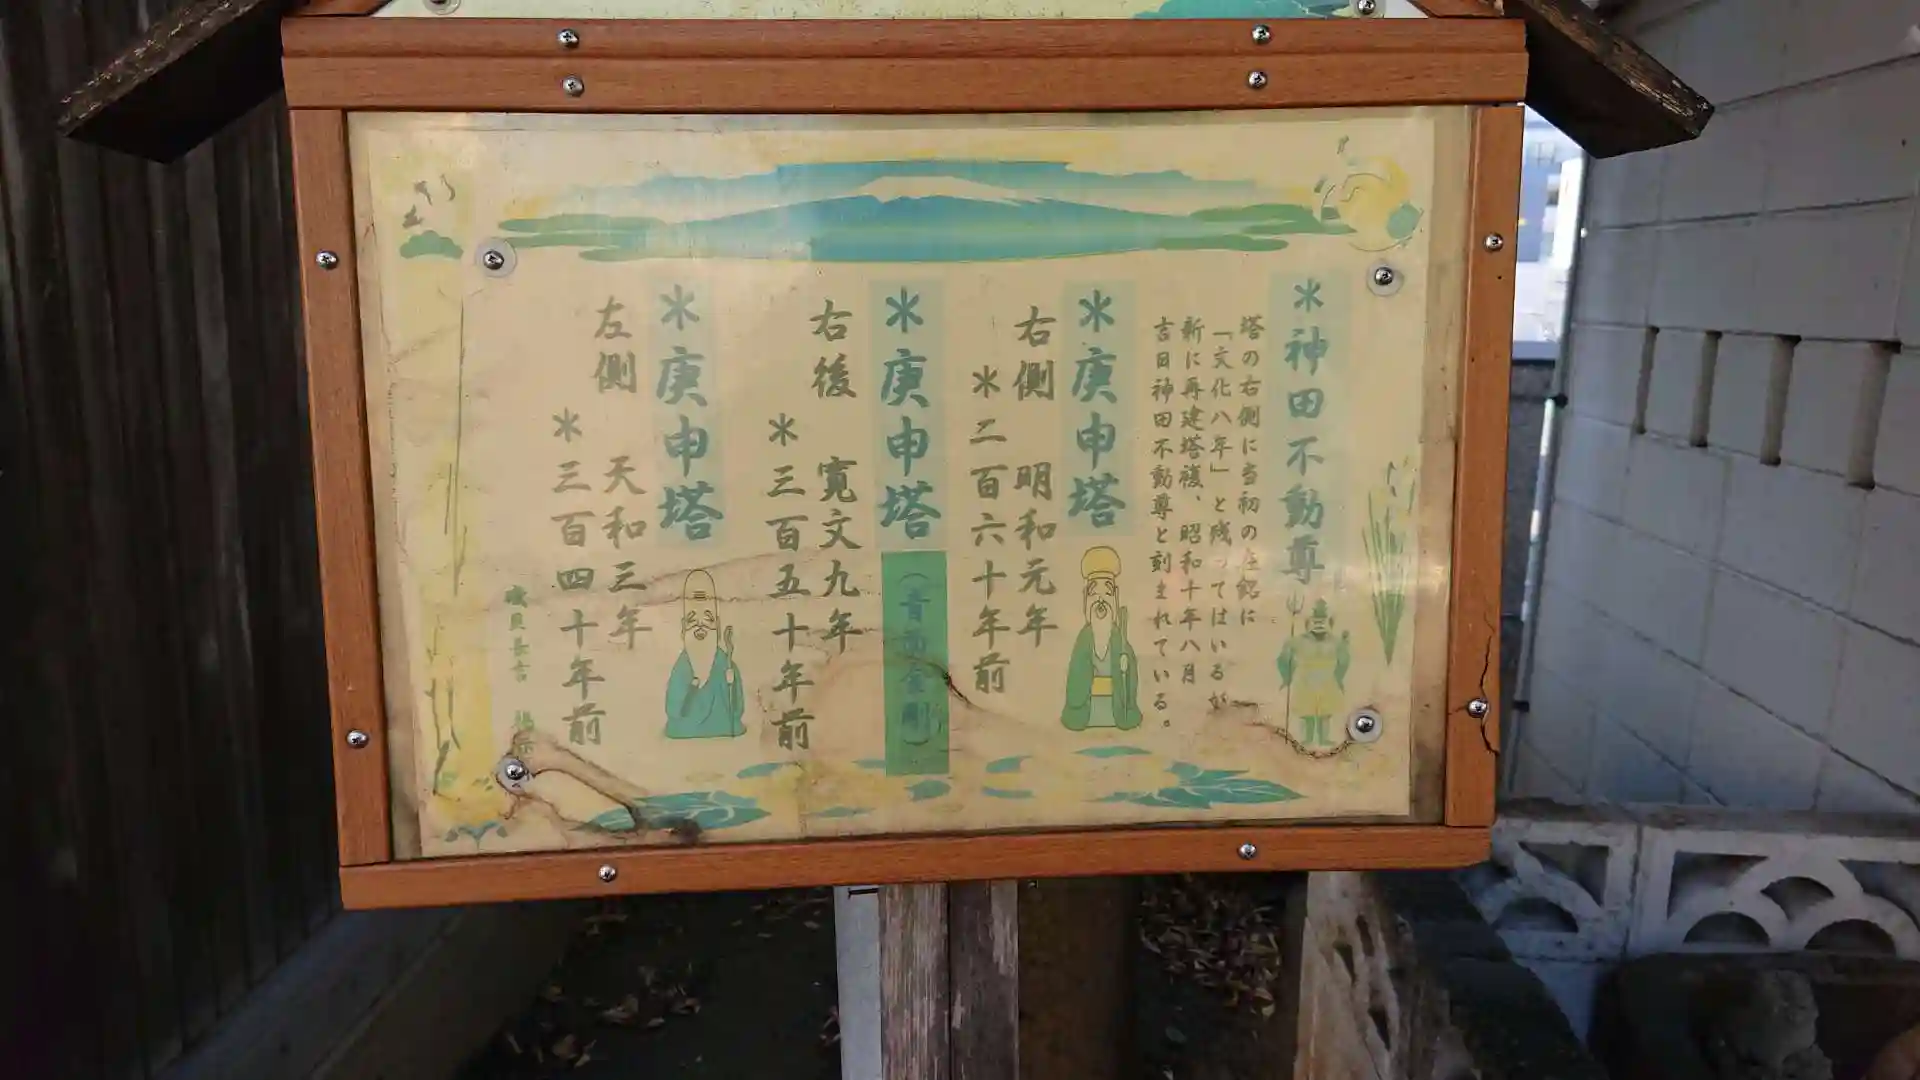 ＊神田不動尊
塔の右側に当初の
「文化八年」と残ってはいるが
新に再建塔複、昭和十年八月
吉日神田不動尊と刻まれている。
＊庚申塔
右側 明和元年
＊二百六十年前
＊庚申塔
（青面金剛）
右後 寛文九年
＊三百五十年前
＊庚申塔
左側 天和三年
＊三百四十年前